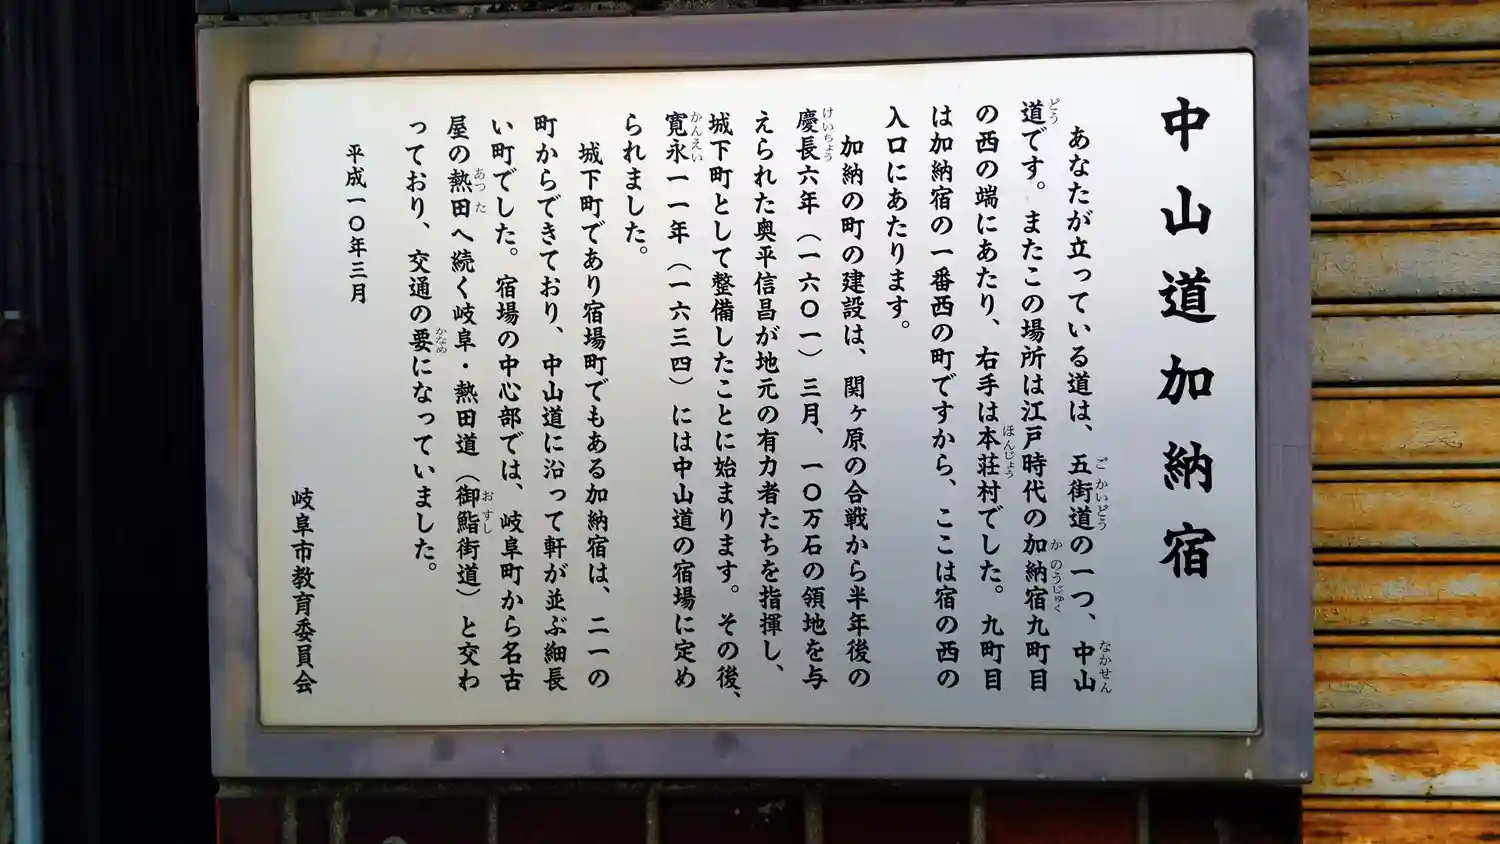 中山道加納宿
あなたが立っている道は、五街道の一つ、中山
道です。またこの場所は江戸時代の加納宿九町目
の西の端にあたり、右手は本荘村でした。九町目
は加納宿の一番西の町ですから、ここは宿の西の
入口にあたります。
加納の町の建設は、関ヶ原の合戦から半年後の
慶長六年（一六〇一）三月、一〇万石の領地を与
えられた奥平信昌が地元の有力者たちを指揮し、
城下町として整備したことに始まります。その後、
寛永一一年（一六三四）には中山道の宿場に定め
られました。
城下町であり宿場町でもある加納宿は、二一の
町からできており、中山道に沿って軒が並ぶ細長
い町でした。宿場の中心部では、岐阜町から名古
屋の熱田へ続く岐阜・熱田道（御鮨街道）と交わ
っており、交通の要になっていました。
平成一〇年三月
岐阜市教育委員会